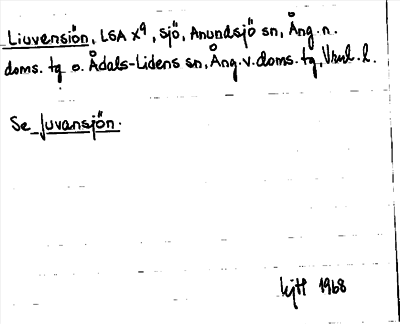 Liuvensiön, LSA X9, sjö, Anundsjö sn, Ång. n.
doms. tg o. Ådals-Lidens sn, Ång. v. doms. tg, Vrml. l.
Se Juvansjön.
1968